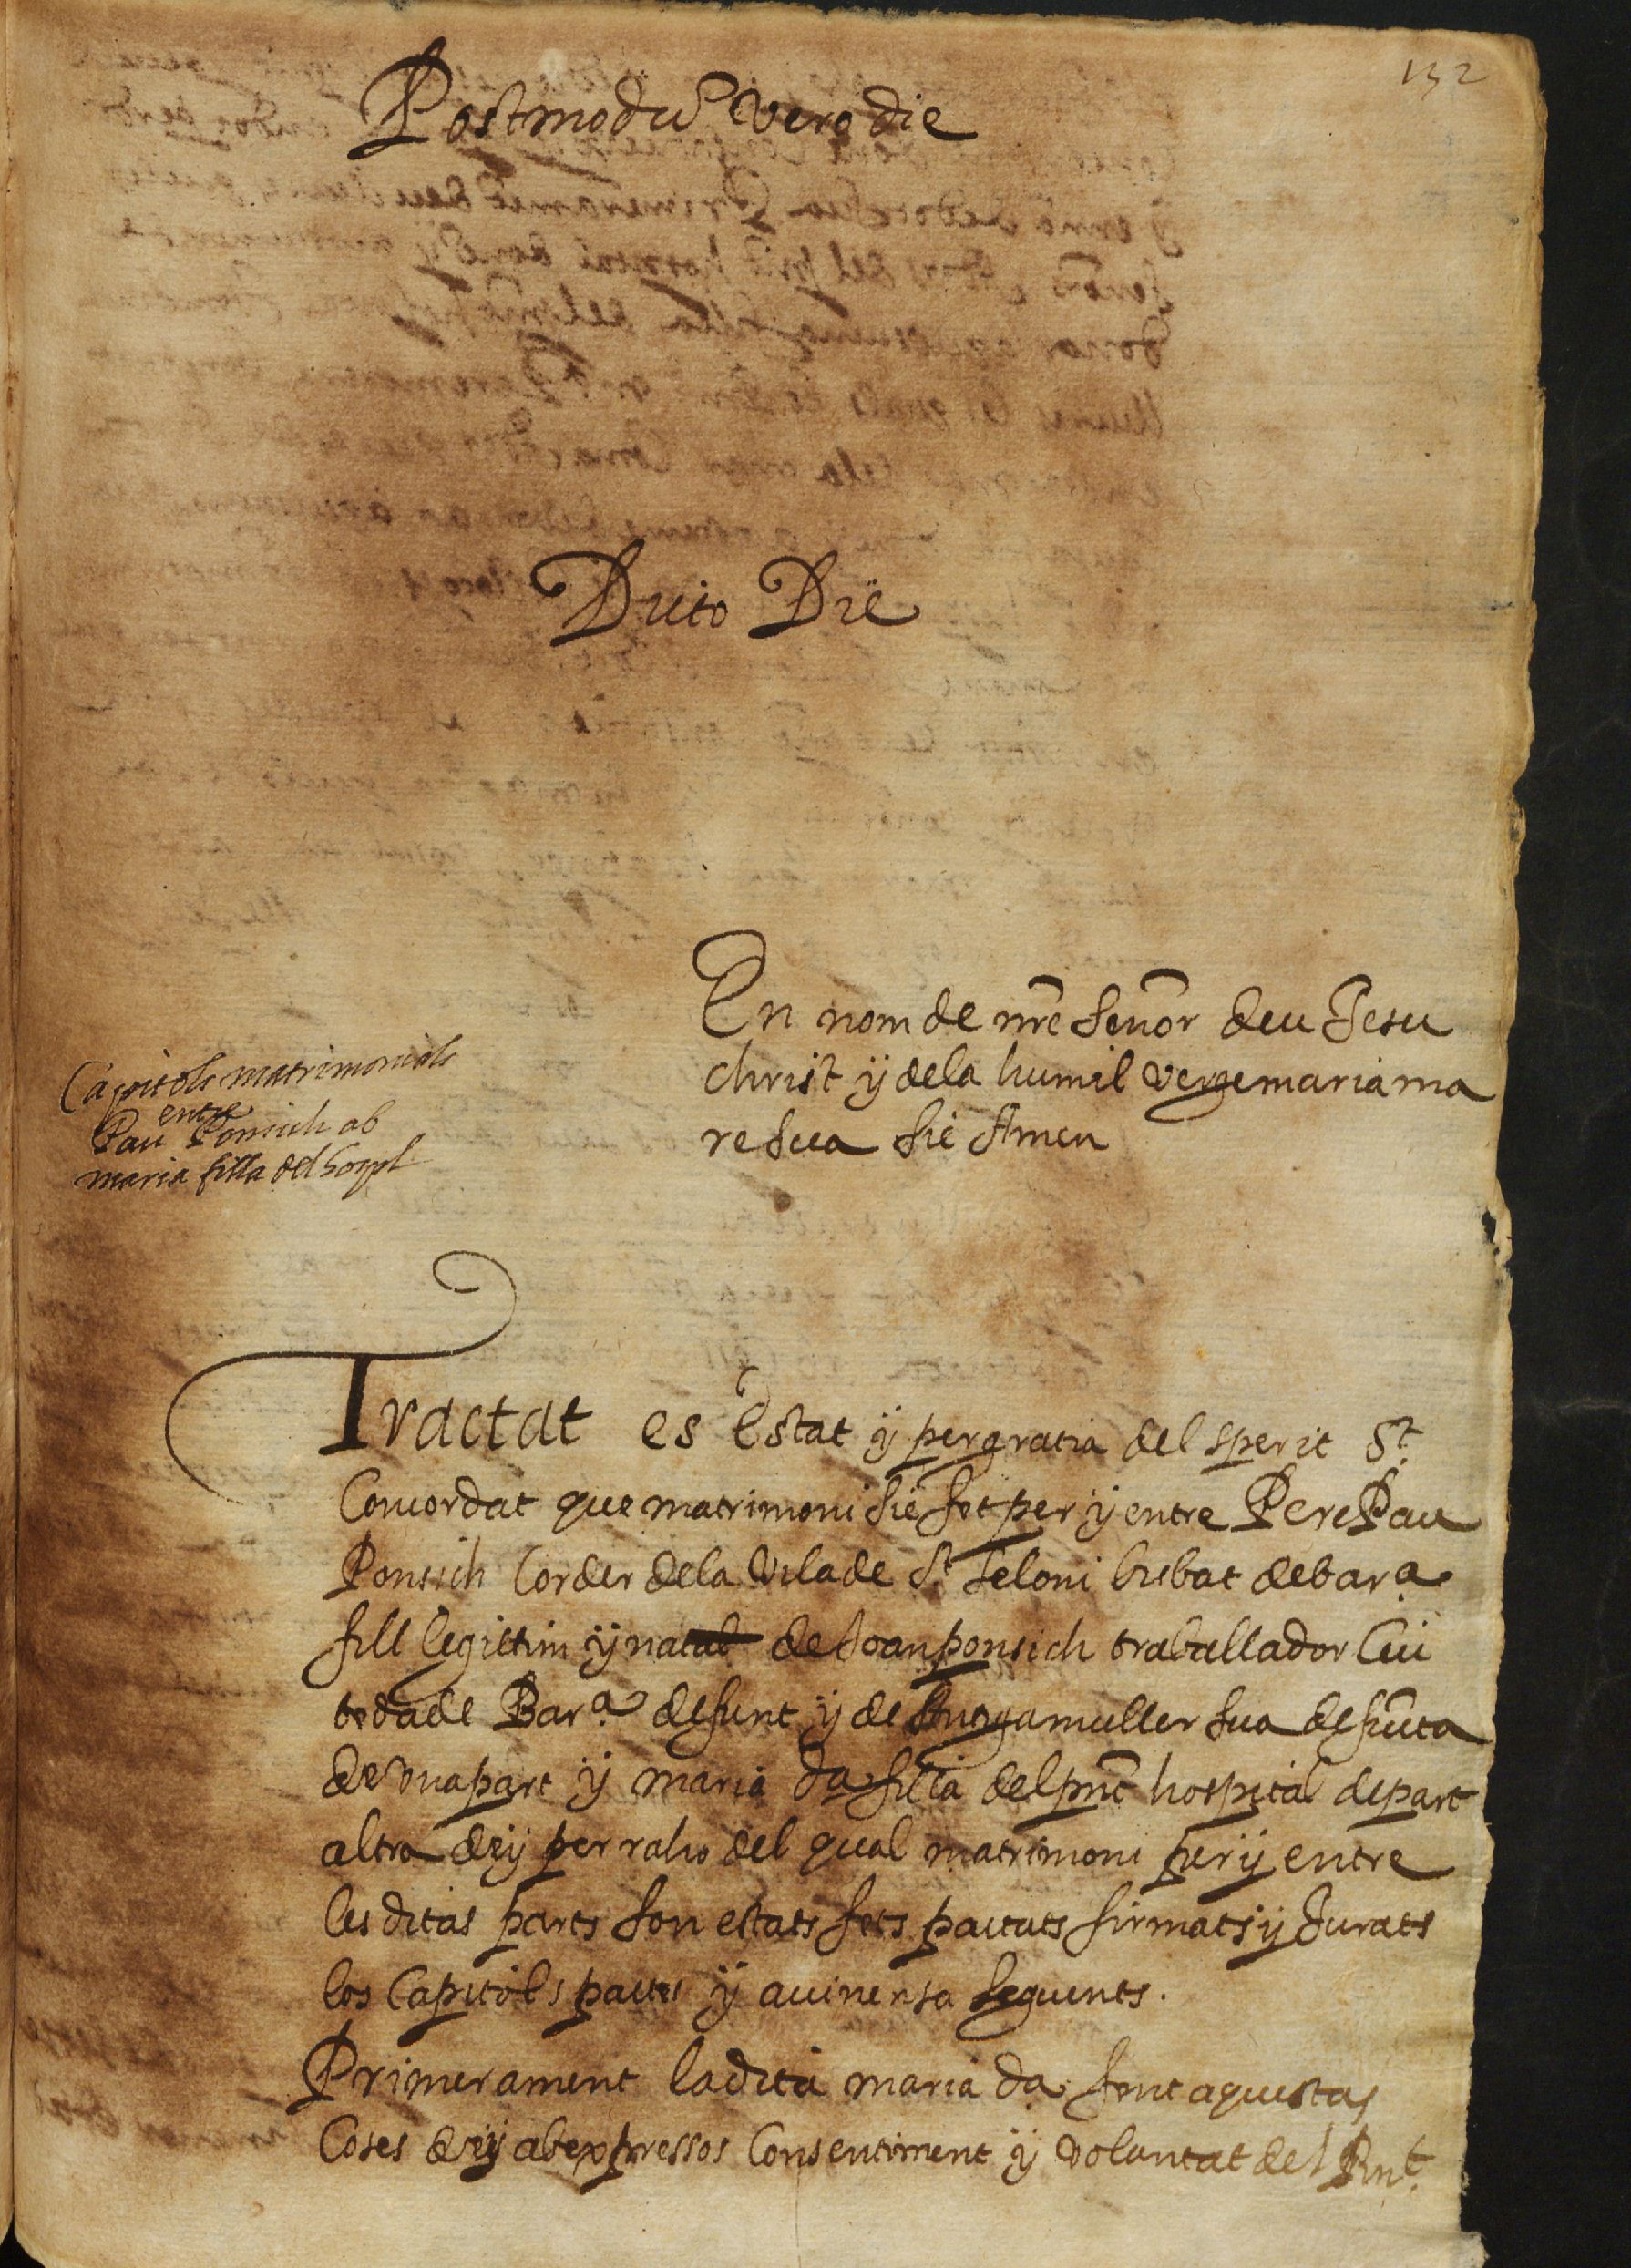 132
Postmodu vero die
Dicto Die
En nom de nre Senor deu Jesu
christ ÿ dela humil verge maria ma
re sua sie Amen
Capitols matrimonials
entre
Pau Ponsich ab
maria filla del hospl
Tractat es Estat ÿ per gratia del sperit St.
Concordat que matrimoni sie fet per ÿ entre Pere Pau
Ponsich Corder dela Vila de St. Seloni bisbat de bara.
fill legittim ÿ natal de Joan ponsich traballador Ciu
teda de Bara. defunt ÿ de muller sua defucta
de vna part ÿ maria da. filla del pnt hospital de part
altra dey per raho del qual matrimoni per ÿ entre
les ditas parts son estats fets pactats firmats ÿ Jurats
los Capitols pactes ÿ avinensa seguents.
Primerament la dita maria da. fent aquestas
Coses dey ab expressos Consentiment ÿ voluntat del Rnt.